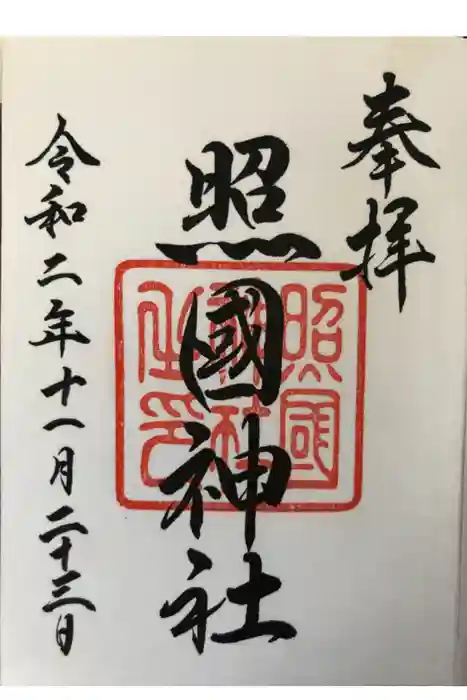 奉拝
照國神社
照國神社之印
令和二年十一月二十三日